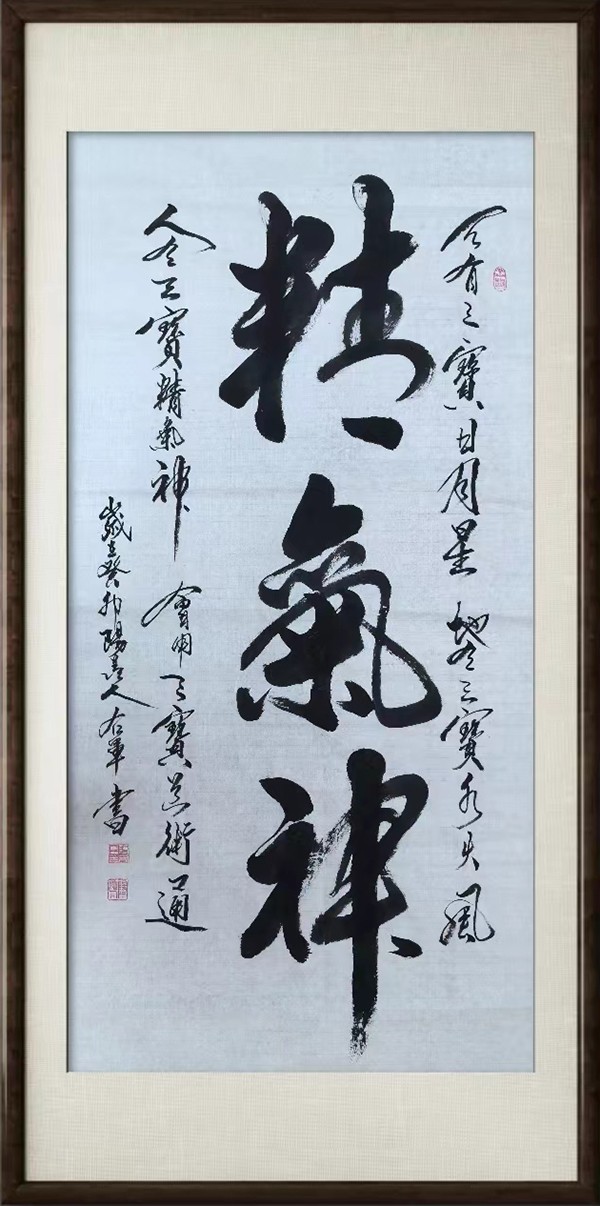 天有三寶日月星 地有三寶水火風
精氣神
人有三寶精氣神 會用三寶道術通
歲在癸卯陽人右軍書